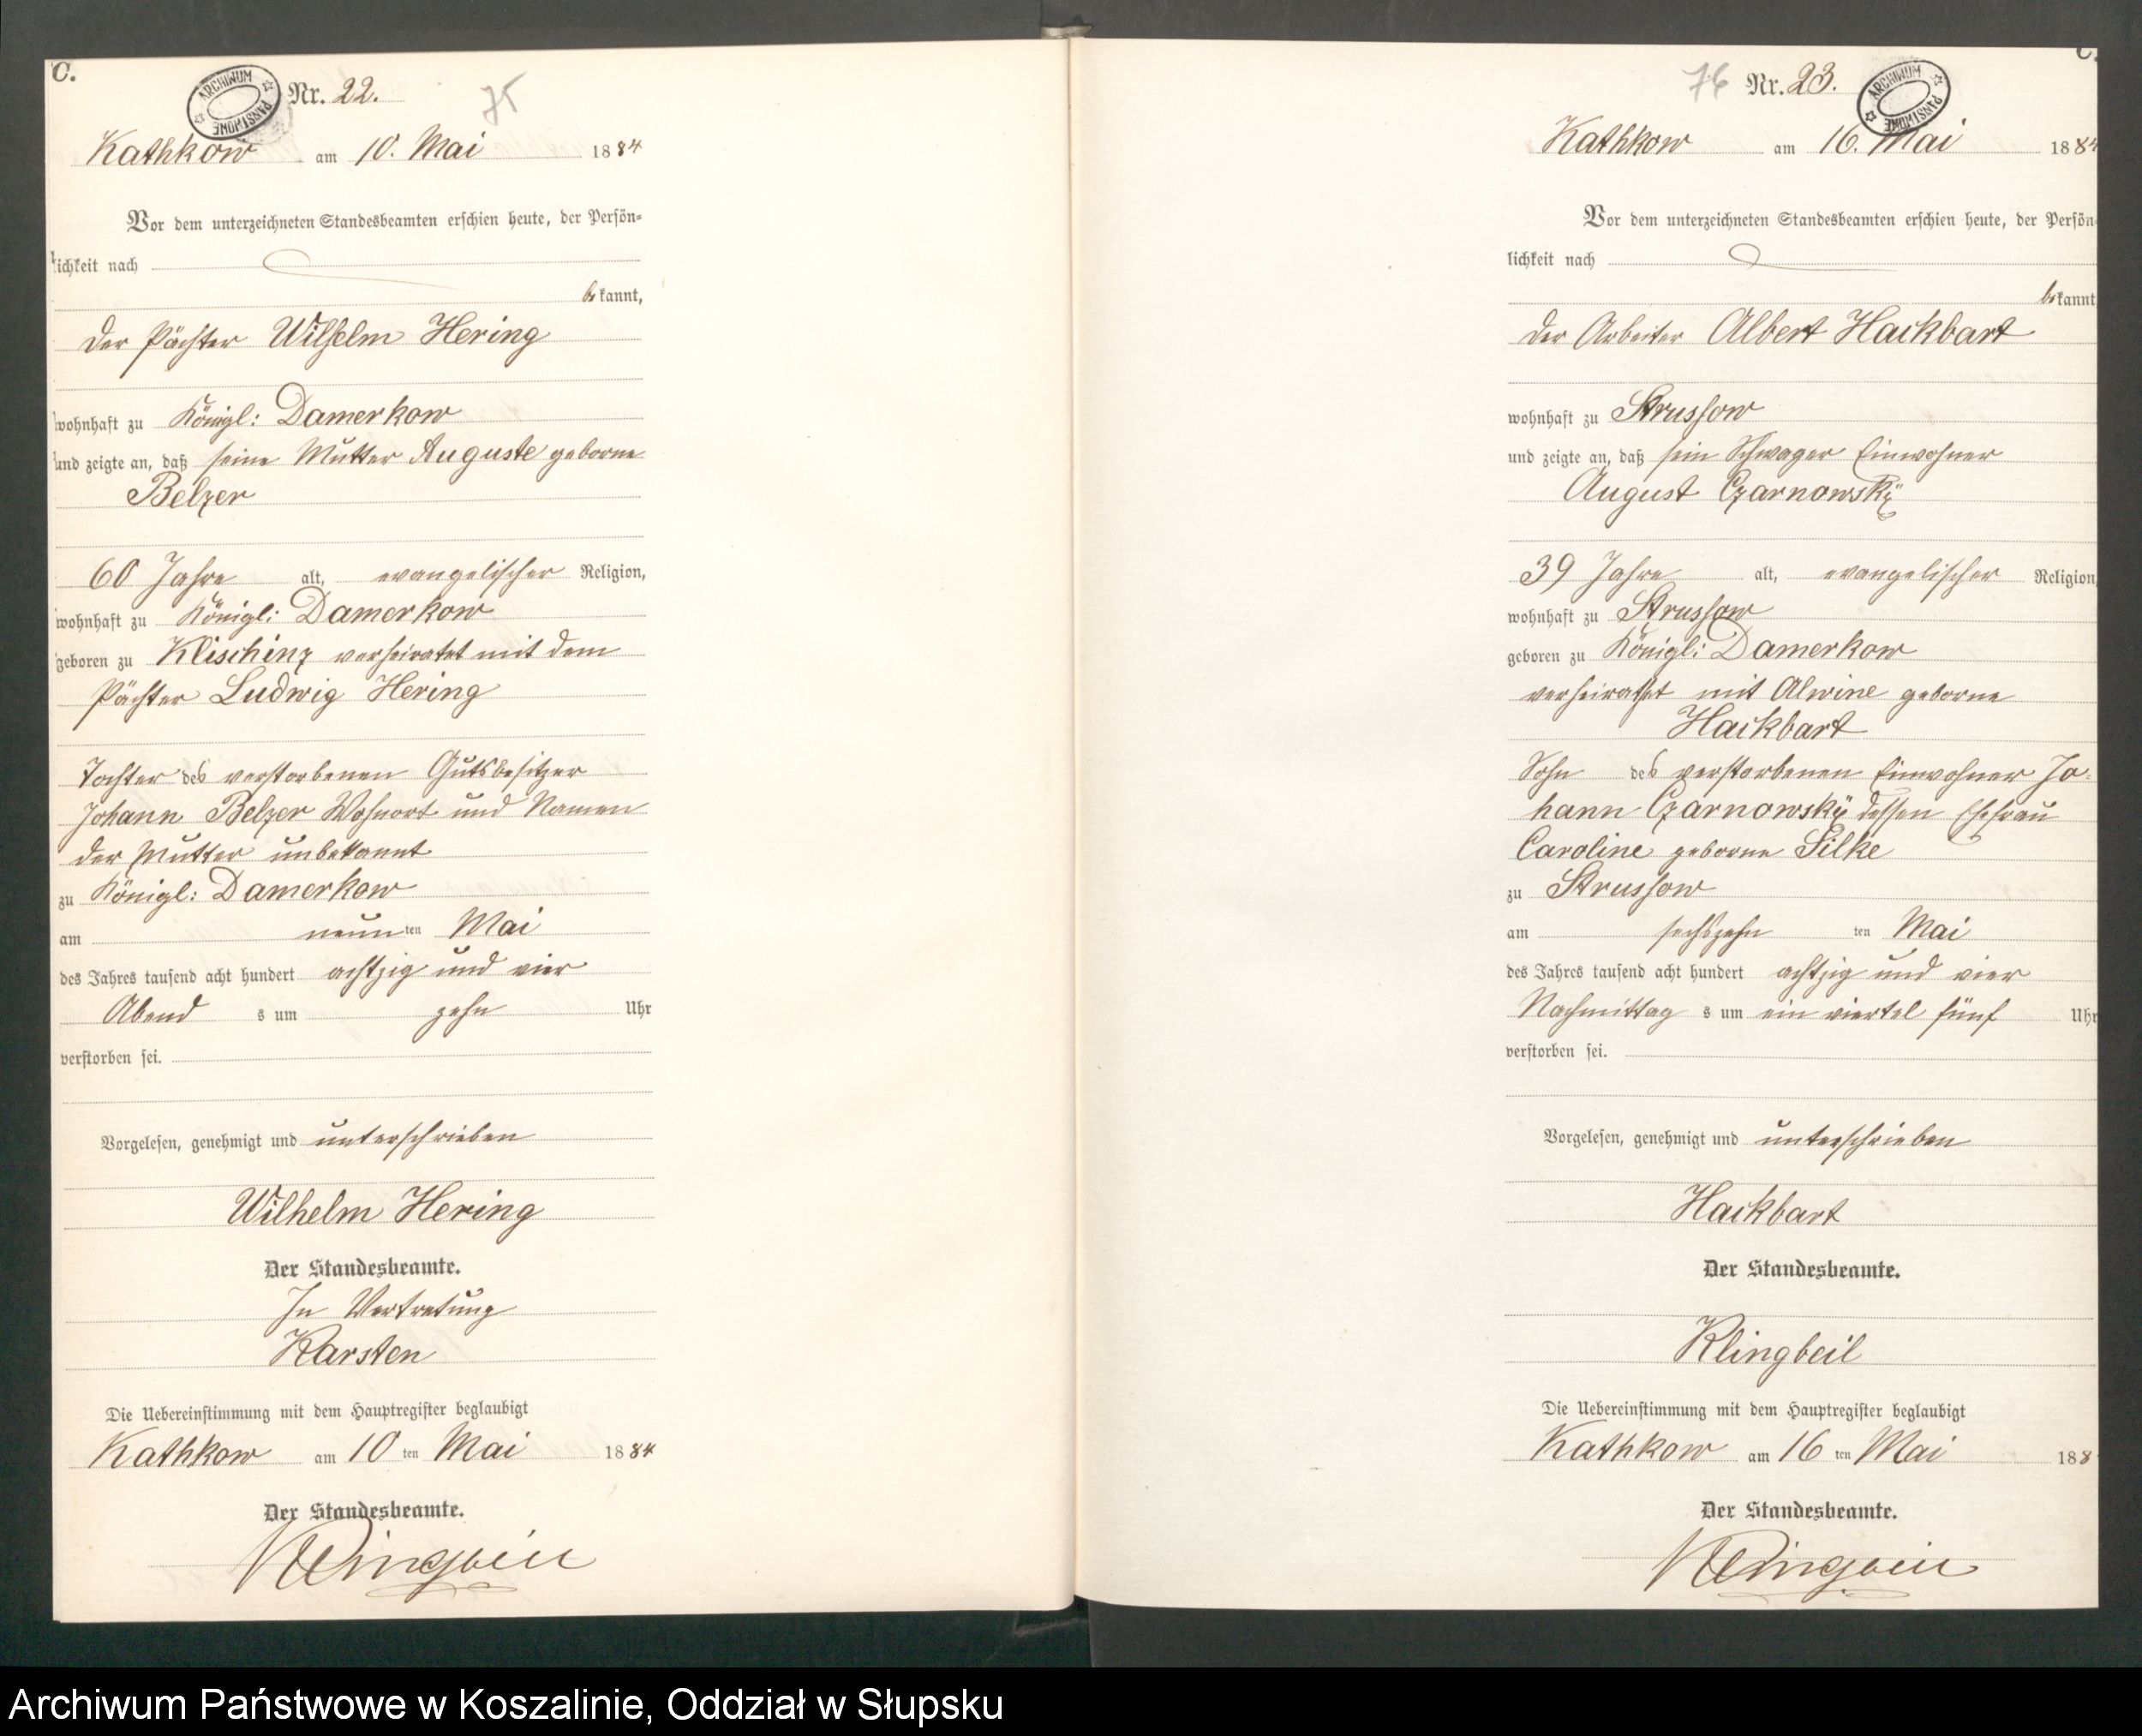 C.
ARCHIWUM PAŃSTWOWE
Nr. 22.
75
Kathkow am 10. Mai 1884
Vor dem unterzeichneten Standesbeamten erschien heute, der Persön-
lichkeit nach
bekannt,
der Pächter Wilhelm Hering
wohnhaft zu Königl: Damerkow
und zeigte an, daß seine Mutter Auguste geborne
Belzer
60 Jahre alt, evangelischer Religion,
wohnhaft zu Königl: Damerkow
geboren zu Klischinz verheiratet mit dem
Pächter Ludwig Hering
Tochter des verstorbenen Gutsbesitzer
Johann Belzer Wohnort und Namen
der Mutter unbekannt
zu Königl: Damerkow
am neunten Mai
des Jahres tausend acht hundert achtzig und vier
Abend s um zehn Uhr
verstorben sei.
Vorgelesen, genehmigt und unterschrieben
Wilhelm Hering
Der Standesbeamte.
In Vertretung
Karsten
Die Uebereinstimmung mit dem Hauptregister beglaubigt
Kathkow am 10 ten Mai 1884
Der Standesbeamte.
Klingbeil
76
Nr. 23.
ARCHIWUM PAŃSTWOWE
Kathkow am 16. Mai 1884
Vor dem unterzeichneten Standesbeamten erschien heute, der Persön
lichkeit nach
bekannt
der Arbeiter Albert Hackbart
wohnhaft zu Strussow
und zeigte an, daß sein Schwager Einwohner
August Czarnowskÿ
39 Jahre alt, evangelischer Religion
wohnhaft zu Strussow
geboren zu Königl: Damerkow
verheirathet mit Alwine geborne
Hackbart
Sohn des verstorbenen Einwohner Jo-
hann Czarnowskÿ dessen Ehefrau
Caroline geborne Silke
zu Strussow
am sechszehn ten Mai
des Jahres tausend acht hundert achtzig und vier
Nachmittag s um ein viertel fünf Uhr
verstorben sei.
Vorgelesen, genehmigt und unterschrieben
Hackbart
Der Standesbeamte.
Klingbeil
Die Uebereinstimmung mit dem Hauptregister beglaubigt
Kathkow am 16 ten Mai 188
Der Standesbeamte.
Klingbeil
Archiwum Państwowe w Koszalinie, Oddział w Słupsku